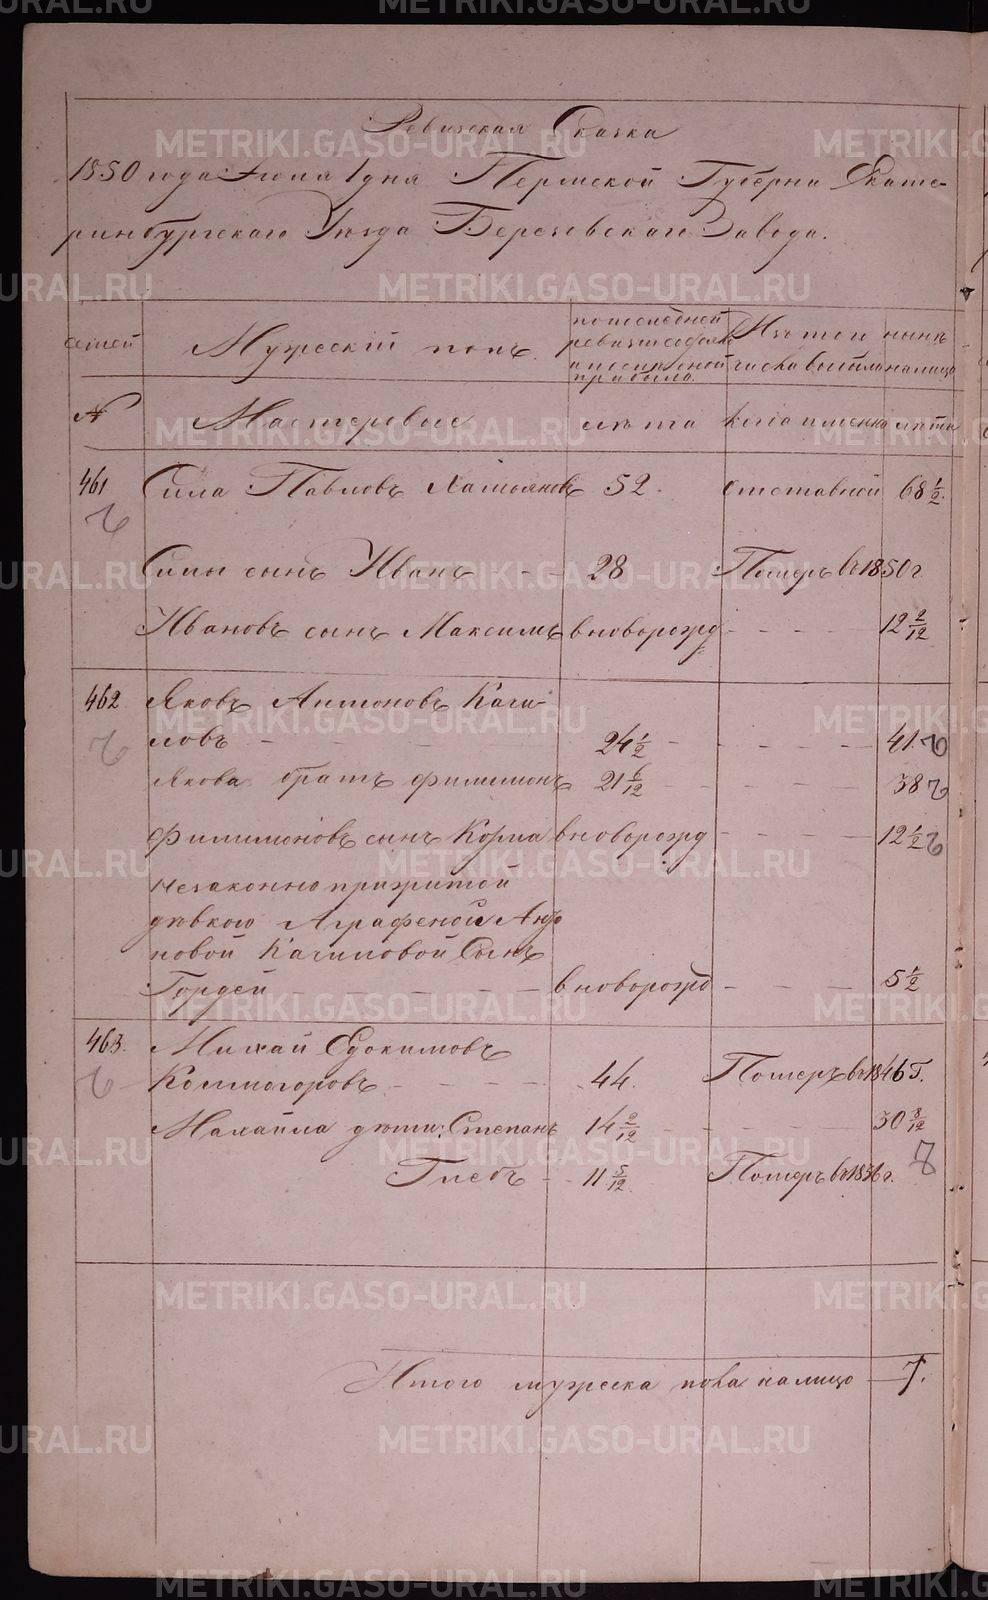 Ревизская Сказка
1850 года Июня 1 дня Пермской Губерни Екате-
ринбургскаго Уезда Березовскаго Завода.
семей
Мужеский полъ.
по последней
ревизии
прибыло.
Изъ того
числа выбыло
ныне
налицо
№
Мастеровые
лета
когда именно
лета
461 Сила Павловъ 52. отставной 68 1/2.
Силы сынъ Иванъ - - - 28 Померъ въ 1850 г.
Ивановъ сынъ Максимъ вноворожд - - - - 12 2/12
462 Яковъ Антоновъ Качи-
ловъ - - - - 24 1/2 - - - - - 41.
Якова братъ Филимонъ 21 6/12 - - - - - 38
Филимоновъ сынъ Козма вноворожд - - - - 12 1/2
Незаконно прижитой
девкою Аграфеной
новой Качиловой Сынъ
Гордей - - - - - - вноворожд - - - - 5 1/2
463. Михай Едокимовъ
Колмогоровъ - - - - 44. Померъ въ 1846 г.
Махайла дети: Степанъ 14 2/12 - - - - - 30 8/12
Глебъ - 11 5/12 Померъ въ 1836 г.
Итого мужеска пола налицо — 7.
METRIKI.GASO-URAL.RU